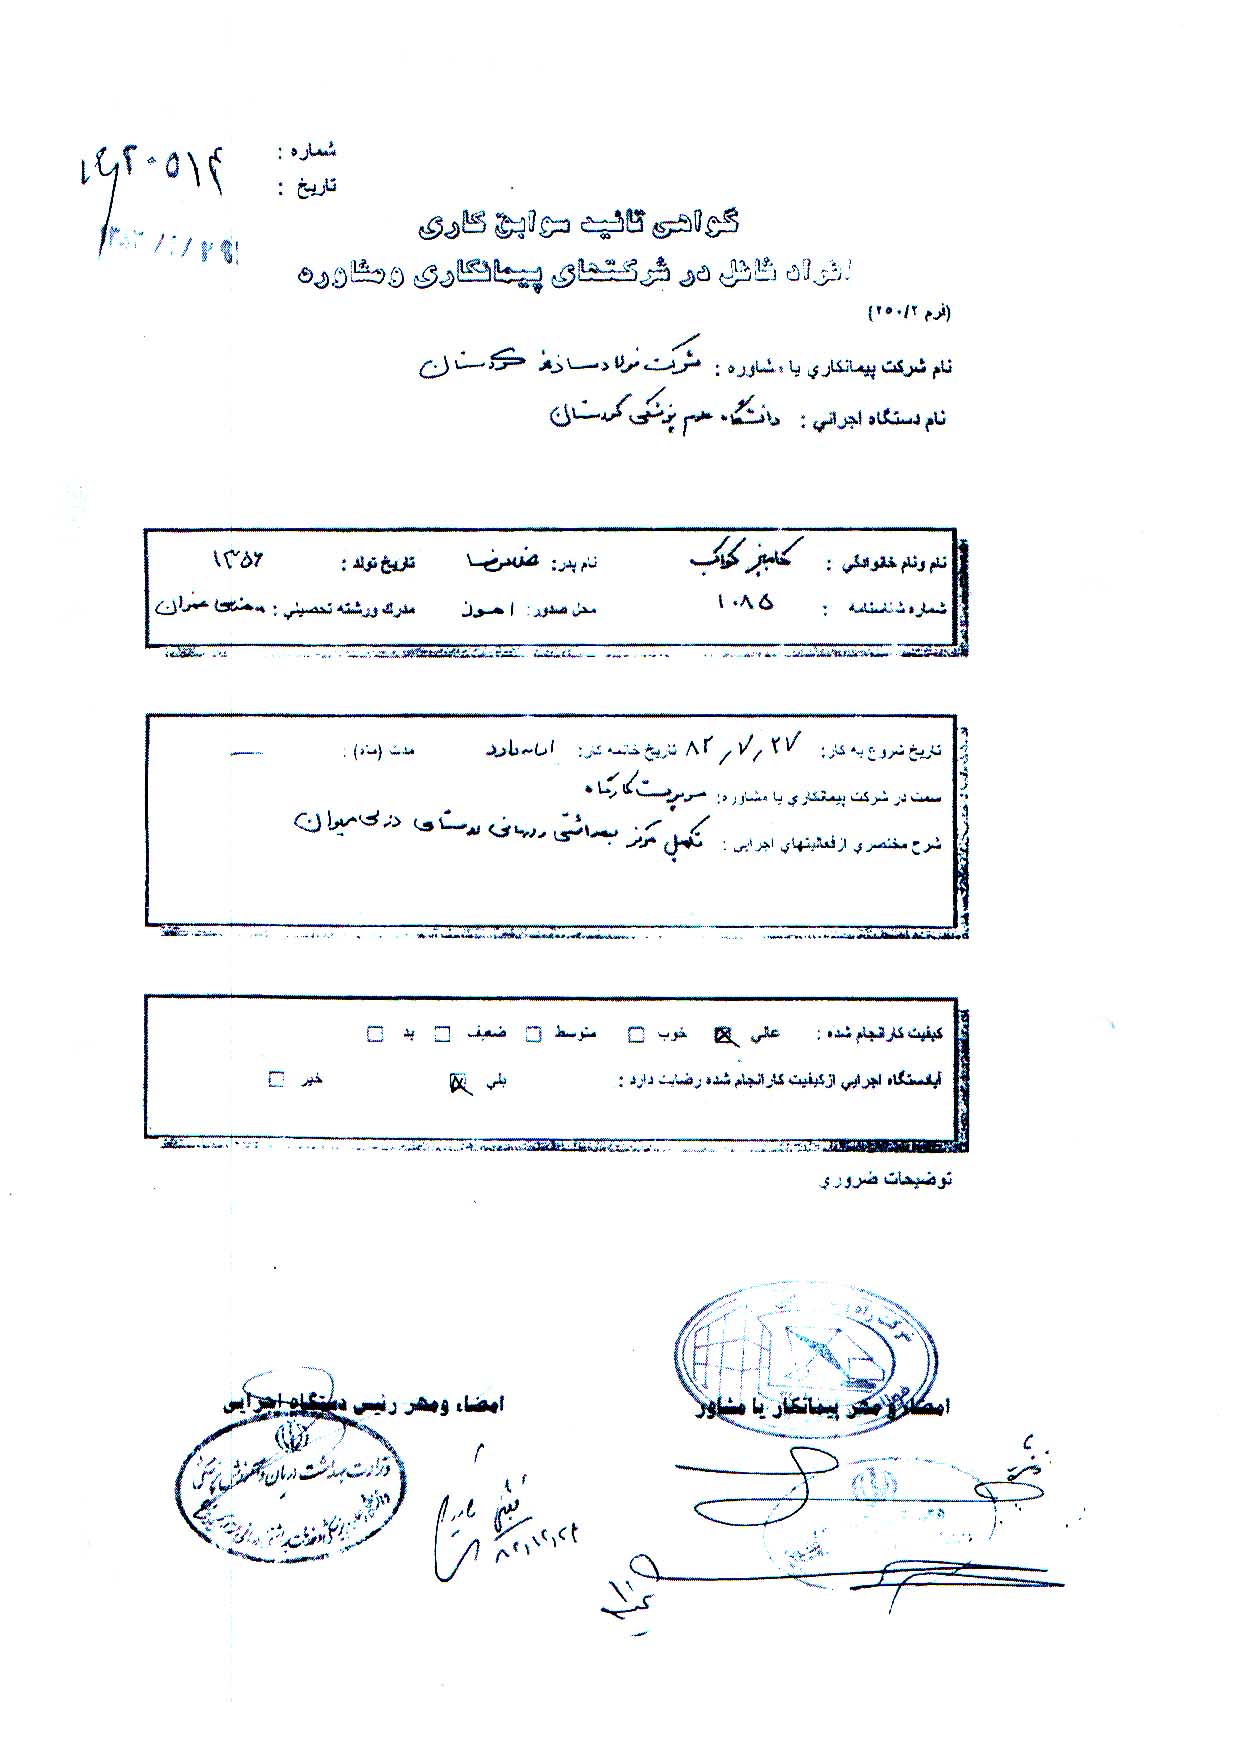 شماره :
تاریخ :
گواهی تائید سوابق کاری
افراد شاغل در شرکتهای پیمانکاری ومشاوره
(فرم ۲۵۰/۲)
نام شرکت پیمانکاري یا مشاوره : شرکت فولاد سازه کردستان
نام دستگاه اجرائي : دانشگاه علوم پزشکی کردستان
نام ونام خانوادگي : کامبیز نام پدر: غلامرضا تاریخ تولد : ۱۳۵۶
شماره شناسنامه : ۱۰۸۵ محل صدور: اهواز مدرك ورشته تحصیلي : مهندسی عمران
تاریخ شروع به کار: ۸۲/۷/۲۷ تاریخ خاتمه کار: ادامه دارد مدت (ماه) : —
سمت در شرکت پیمانکاري یا مشاوره: سرپرست کارگاه
شرح مختصري ازفعالیتهاي اجرایی : تکمیل مرکز بهداشتی درمانی روستای دزلی مریوان
کیفیت کارانجام شده : عالي ☒ خوب □ متوسط □ ضعیف □ بد □
آیادستگاه اجرایي ازکیفیت کارانجام شده رضایت دارد : بلي ☒ خیر □
توضیحات ضروري
امضاء و مهر پیمانکار یا مشاور
امضاء ومهر رئیس دستگاه اجرایی
وزارت بهداشت درمان و آموزش پزشکی
۸۲/۱۲/۲۴